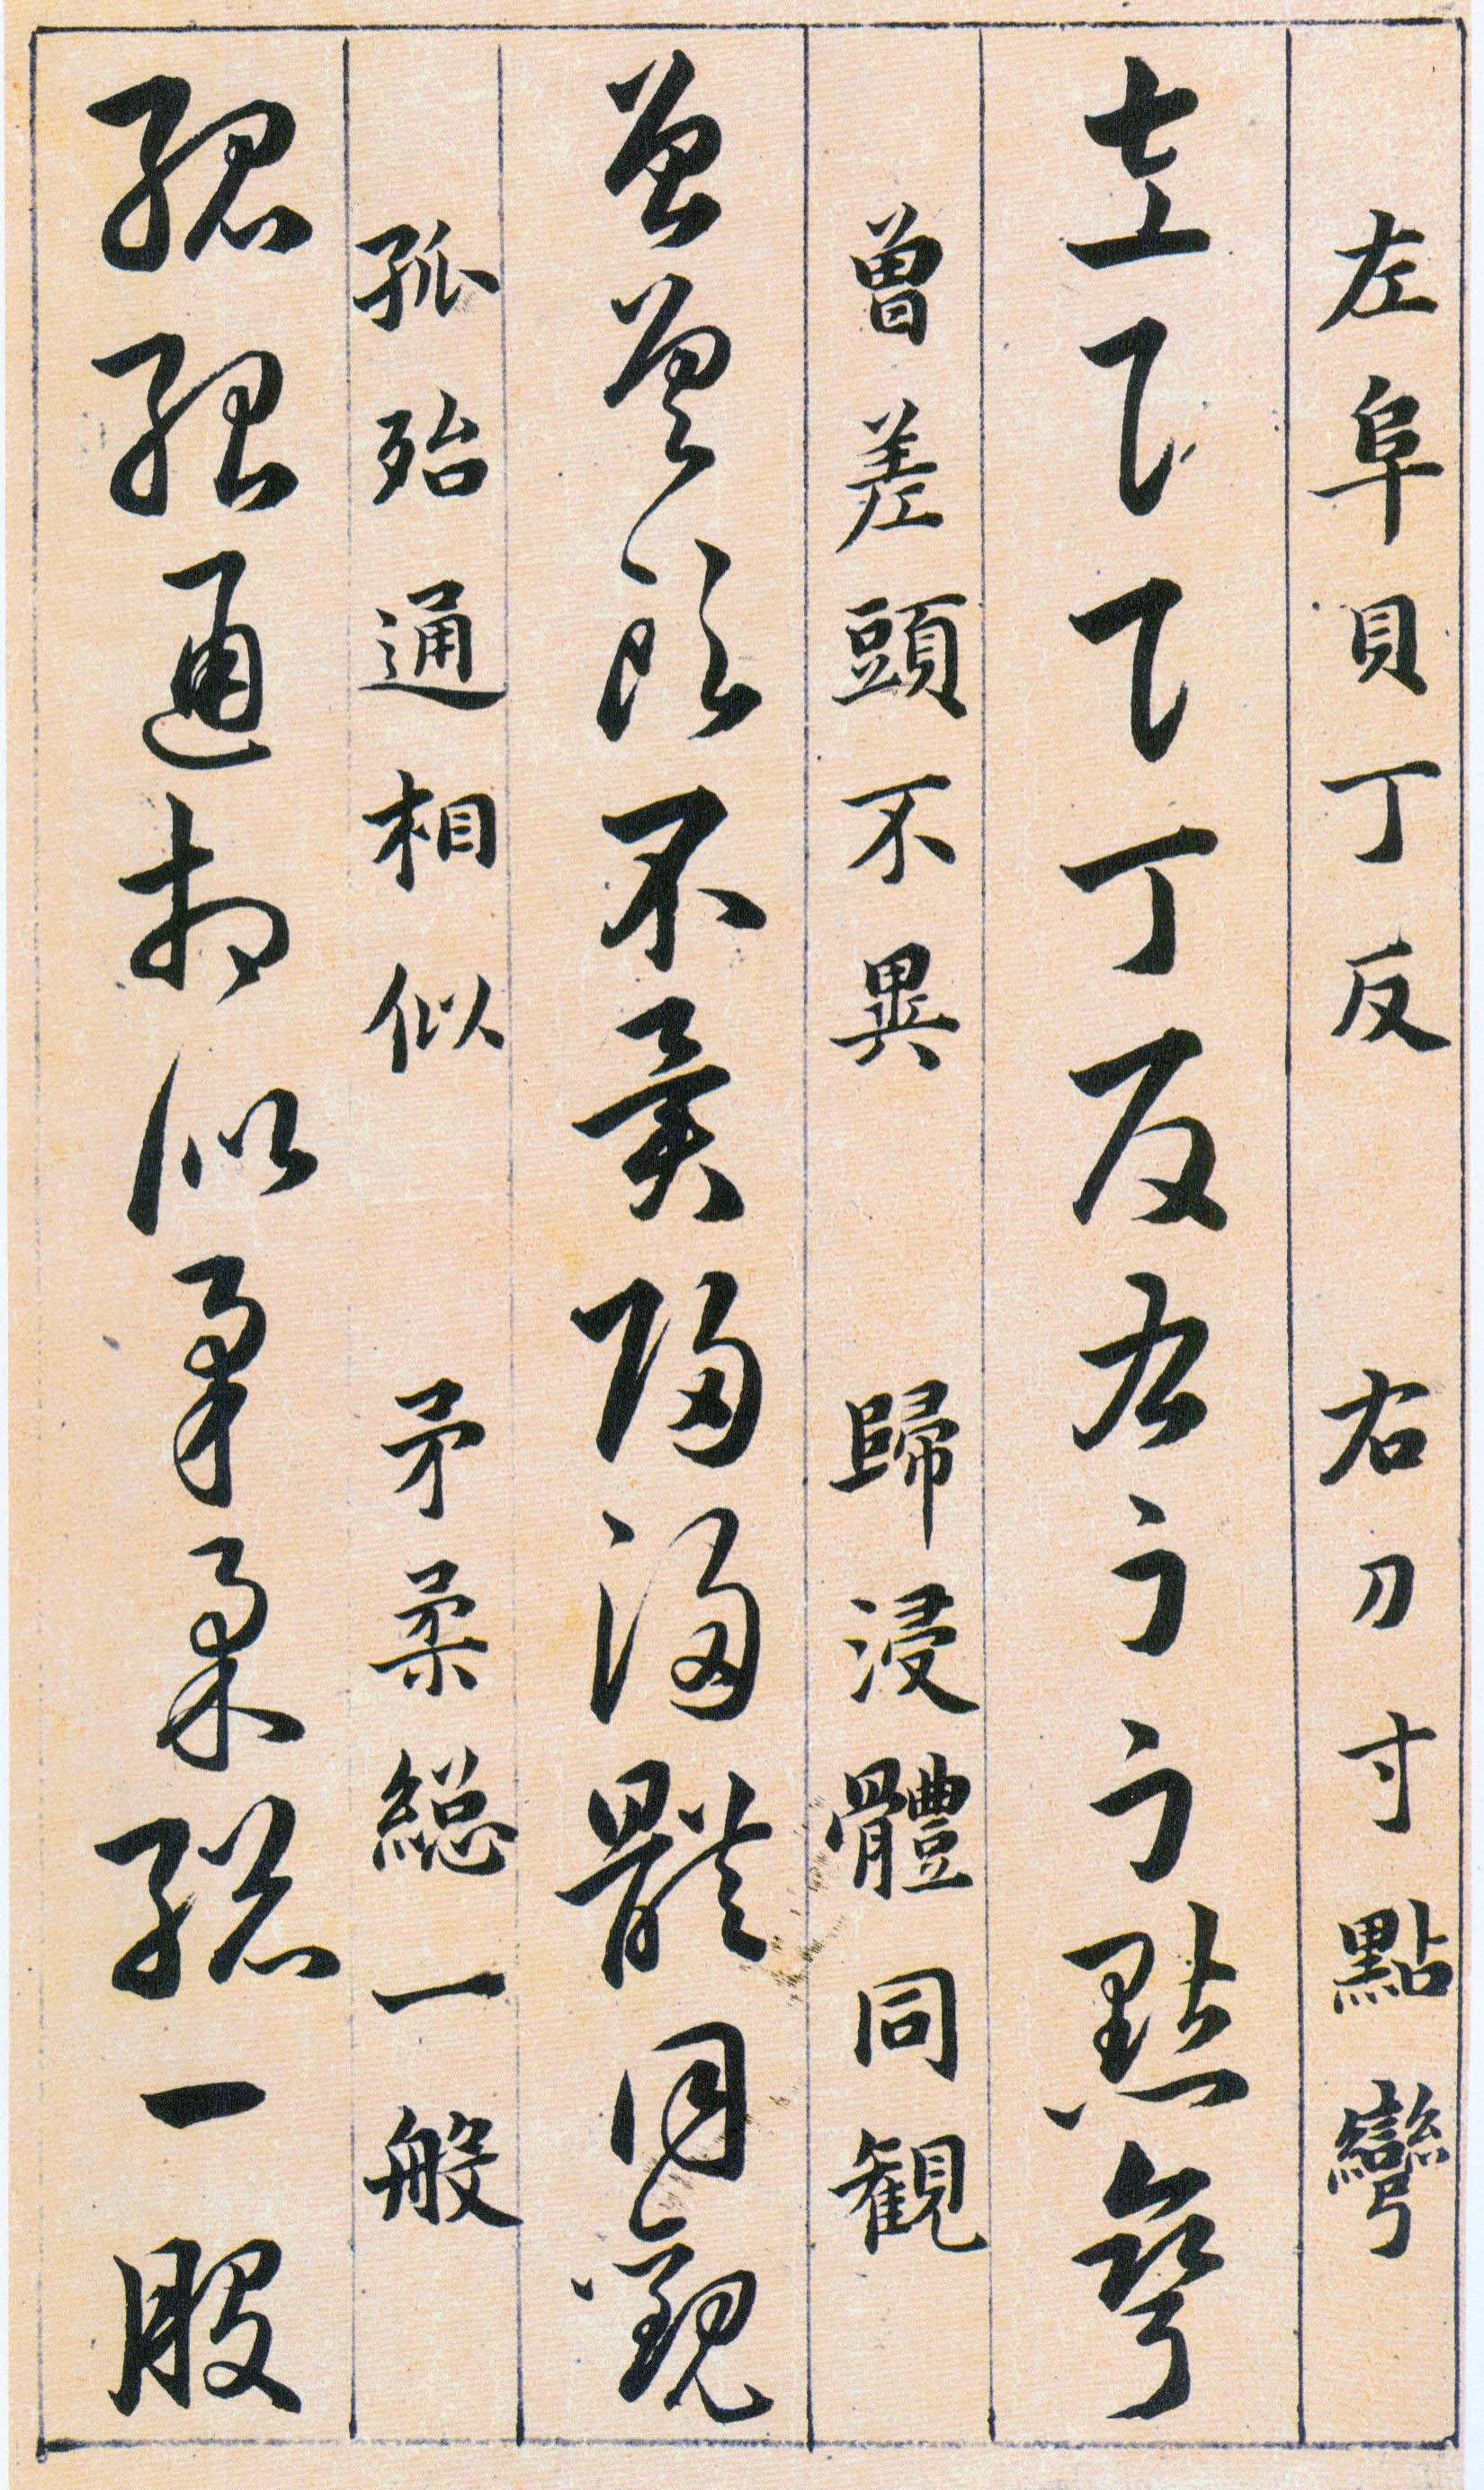 左阜貝丁反 右刀寸點彎
左阜貝丁反右刀寸點彎
曽差頭不異 歸浸體同観
曽差頭不異歸浸體同観
孤殆通相似 矛柔総一般
孤殆通相似矛柔総一般